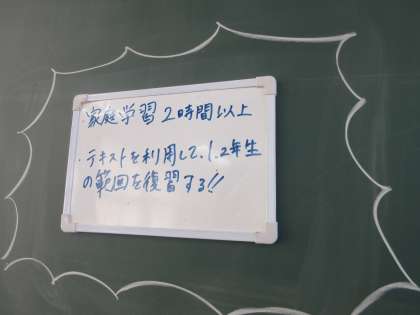 家庭学習 2時間以上
・テキストを利用して、1.2年生
の範囲を復習する!!